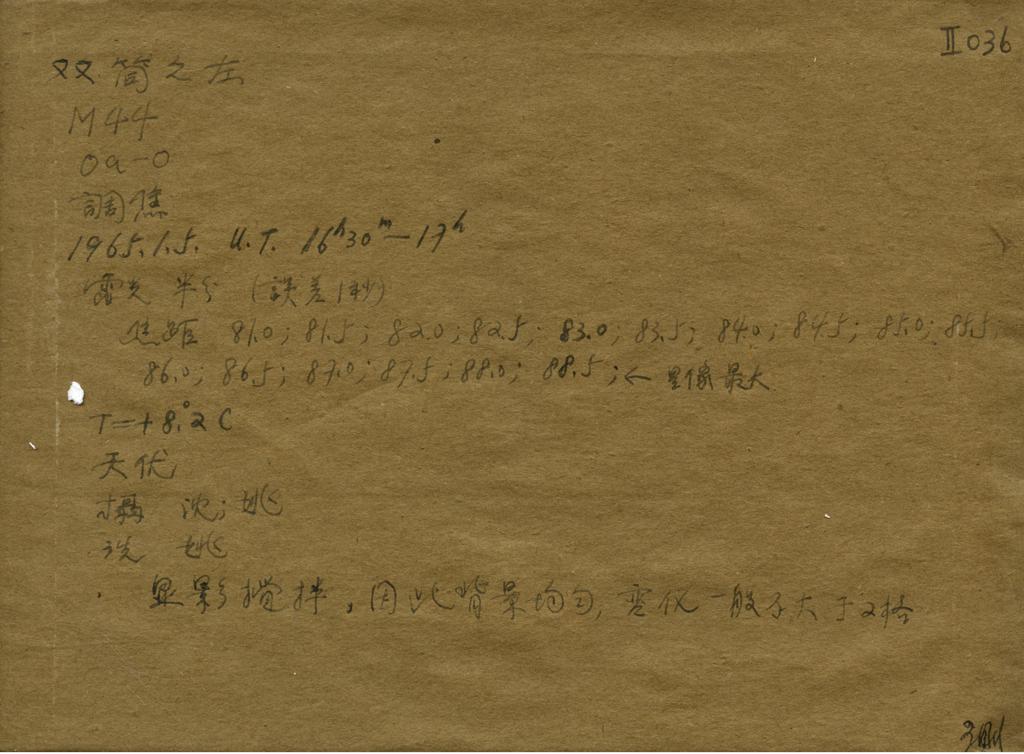 II036
双筒之左
M44
Oa-O
調焦
1965.1.5. U.T. 16ʰ30ᵐ—17ʰ
露光 半分 (誤差1秒)
焦距 81.0; 81.5; 82.0; 82.5; 83.0; 83.5; 84.0; 84.5; 85.0; 85.5;
86.0; 86.5; 87.0; 87.5; 88.0; 88.5; ← 星像最大
T=+8°.2 C
天伏
攝 沈; 姚
洗 姚
显影搅拌, 因此背景均匀, 变化一般不大于2格